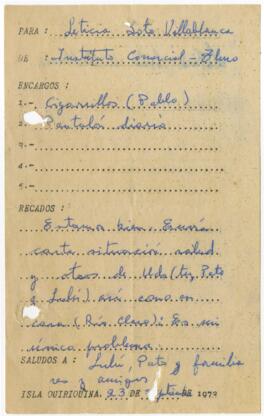 PARA : Leticia Soto Villablanca
DE : Instituto Comercial -
ENCARGOS :
1.- Cigarrillos (Pablo)
2.- Pantalón diario
3.-
4.-
5.-
RECADOS :
Estamos bien. Envía
carta situación salud
y otros de Uds (tú, Pato
y Lulú) así como en
casa (Río Claro): Es mi
único problema
SALUDOS A : Lulú, Pato y familia
res y amigos
ISLA QUIRIQUINA, 23 DE septiembre 1973